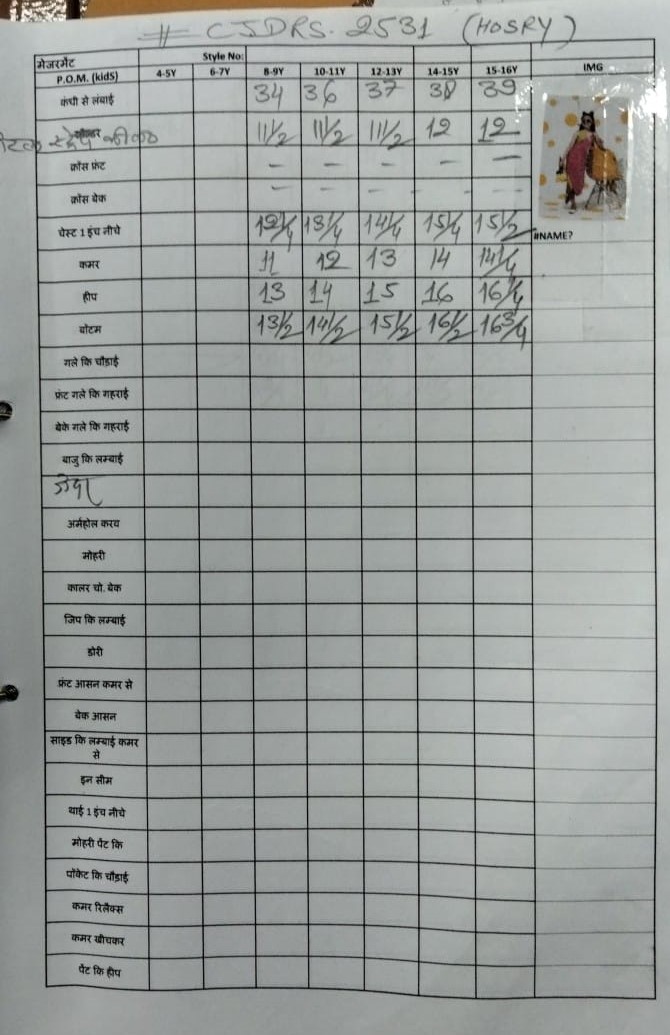 # CJDRS. 2531 (HOSRY)
मेजरमेंट Style No:
P.O.M. (kidS) 4-5Y 6-7Y 8-9Y 10-11Y 12-13Y 14-15Y 15-16Y IMG
कंधी से लंबाई 34 36 37 38 39
11 1/2 11 1/2 11 1/2 12 12
क्रॉस फ्रंट - - - - -
क्रॉस बेक - - - - -
चेस्ट 1 इंच नीचे 12 1/4 13 1/4 14 1/4 15 1/4 15 1/2 #NAME?
कमर 11 12 13 14 14 1/4
हीप 13 14 15 16 16 1/4
बोटम 13 1/2 14 1/2 15 1/2 16 1/2 16 3/4
गले कि चौड़ाई
फ्रंट गले कि गहराई
बेके गले कि गहराई
बाजु कि लम्बाई
अर्महोल करव
मोहरी
कालर चो. बेक
जिप कि लम्बाई
डोरी
फ्रंट आसन कमर से
बेक आसन
साइड कि लम्बाई कमर
से
इन सीम
थाई 1 इंच नीचे
मोहरी पेंट कि
पॉकेट कि चौड़ाई
कमर रिलैक्स
कमर खीचकर
पेंट कि हीप